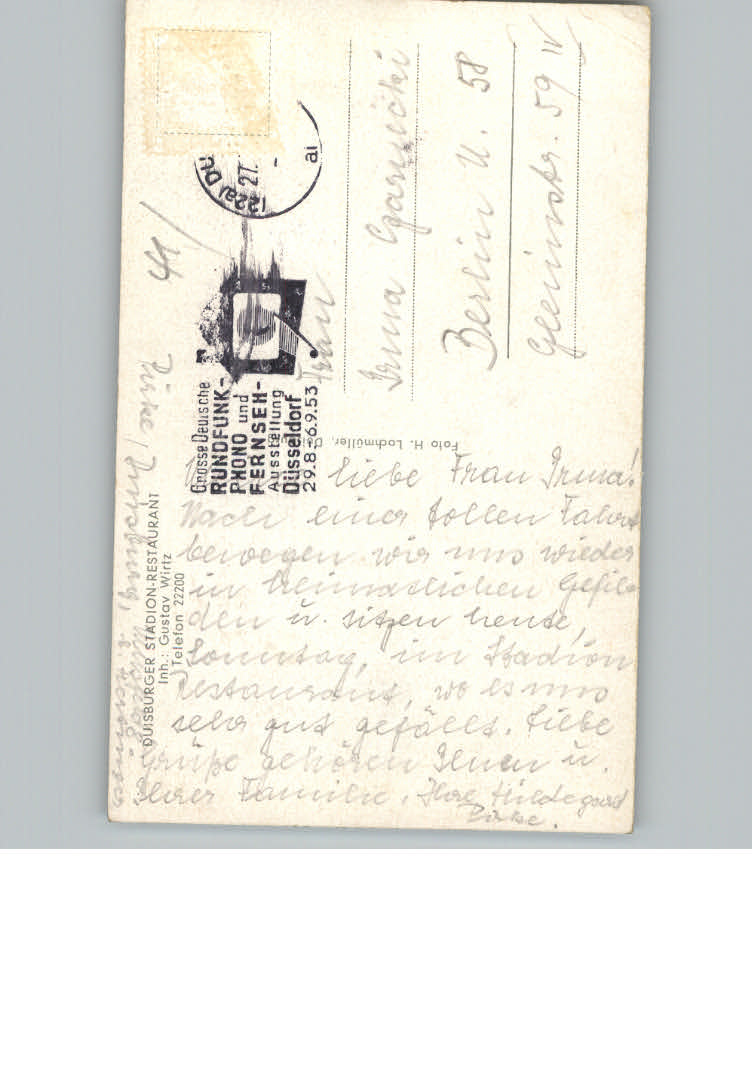 liebe Frau Irma!
Nach einer tollen Fahrt
bewegen wir uns wieder
in heimatlichen Gefil-
den u. sitzen heute,
Sonntag, im Stadion
Restaurant, wo es uns
sehr gut gefällt. Liebe
Grüße gehören Ihnen u.
Ihrer Familie, Ihre Hildegard
DUISBURGER STADION-RESTAURANT
Inh.: Gustav Wirtz
Telefon 22200
Foto H. Lochmüller,
Grosse Deutsche
RUNDFUNK-
PHONO und
FERNSEH-
Ausstellung
Düsseldorf
29.8.-6.9.53
(22a) DU
27.
ai
Frau
Irma
Berlin N. 58
Gleimstr. 59 IV